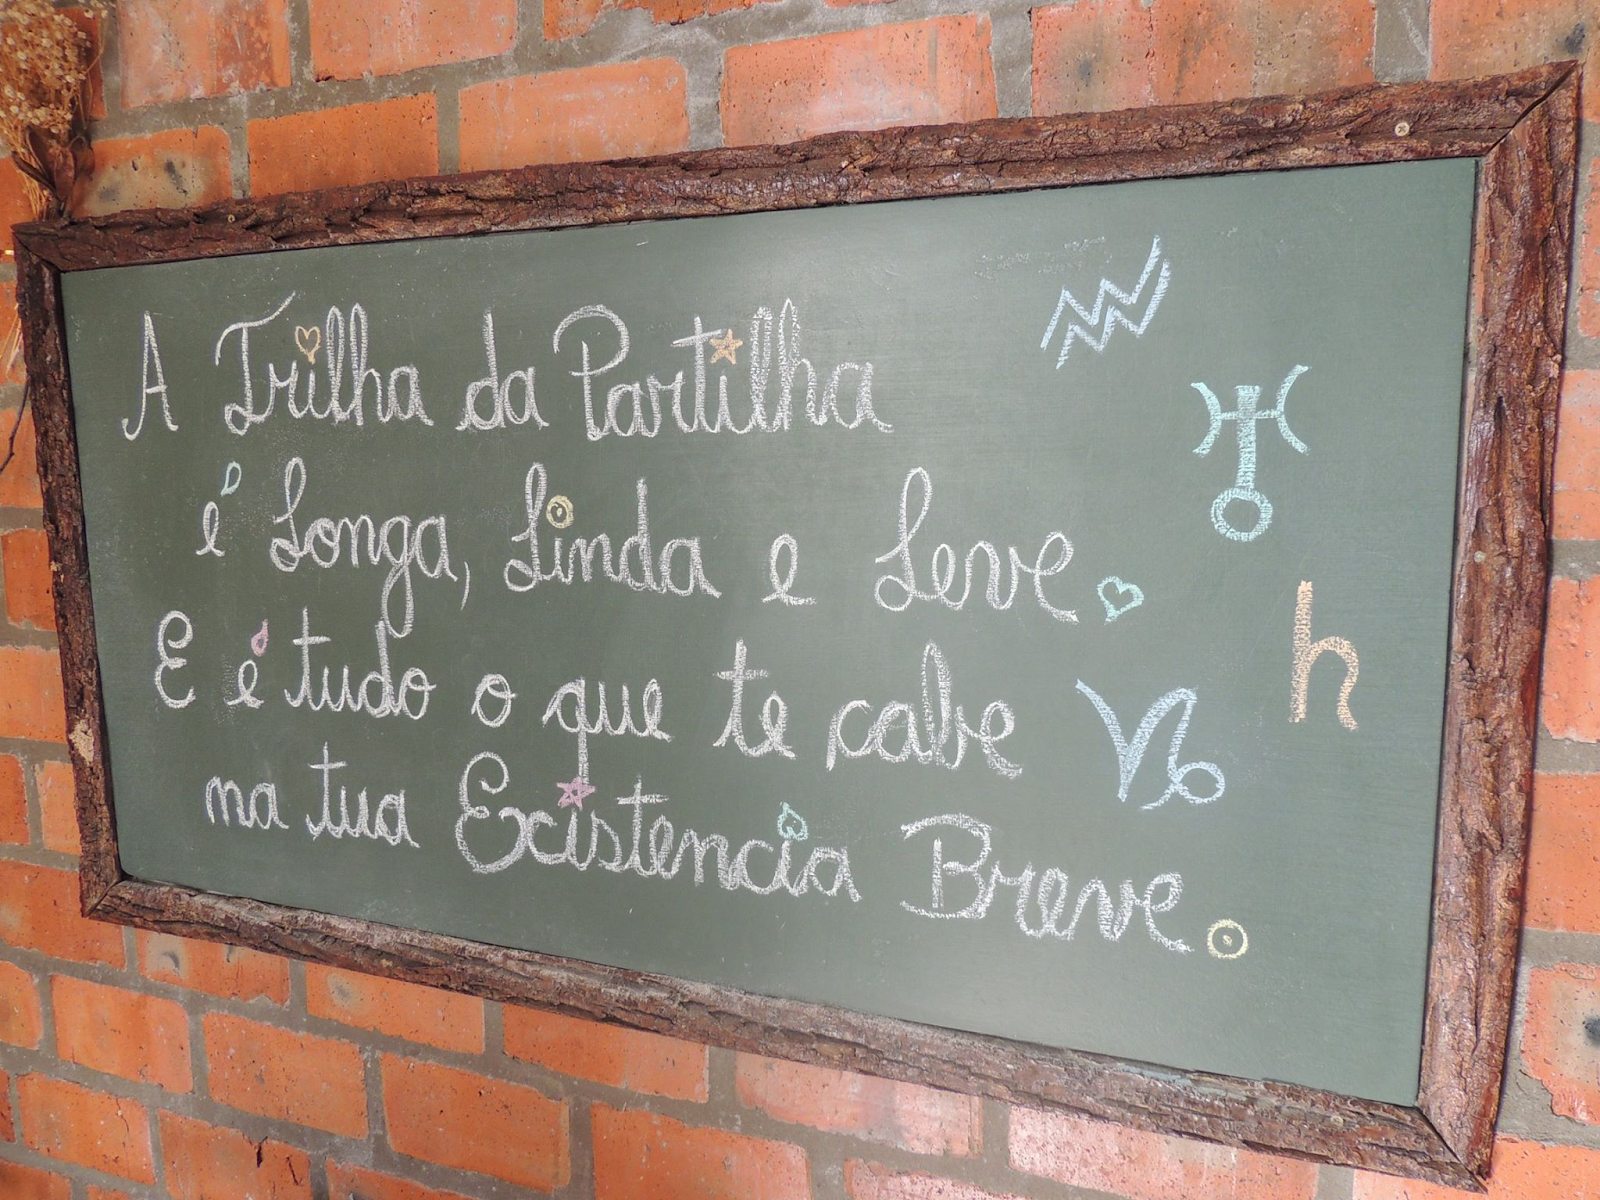 A Trilha da Partilha
é Longa, Linda e Leve.
E é tudo o que te cabe
na tua Existencia Breve.